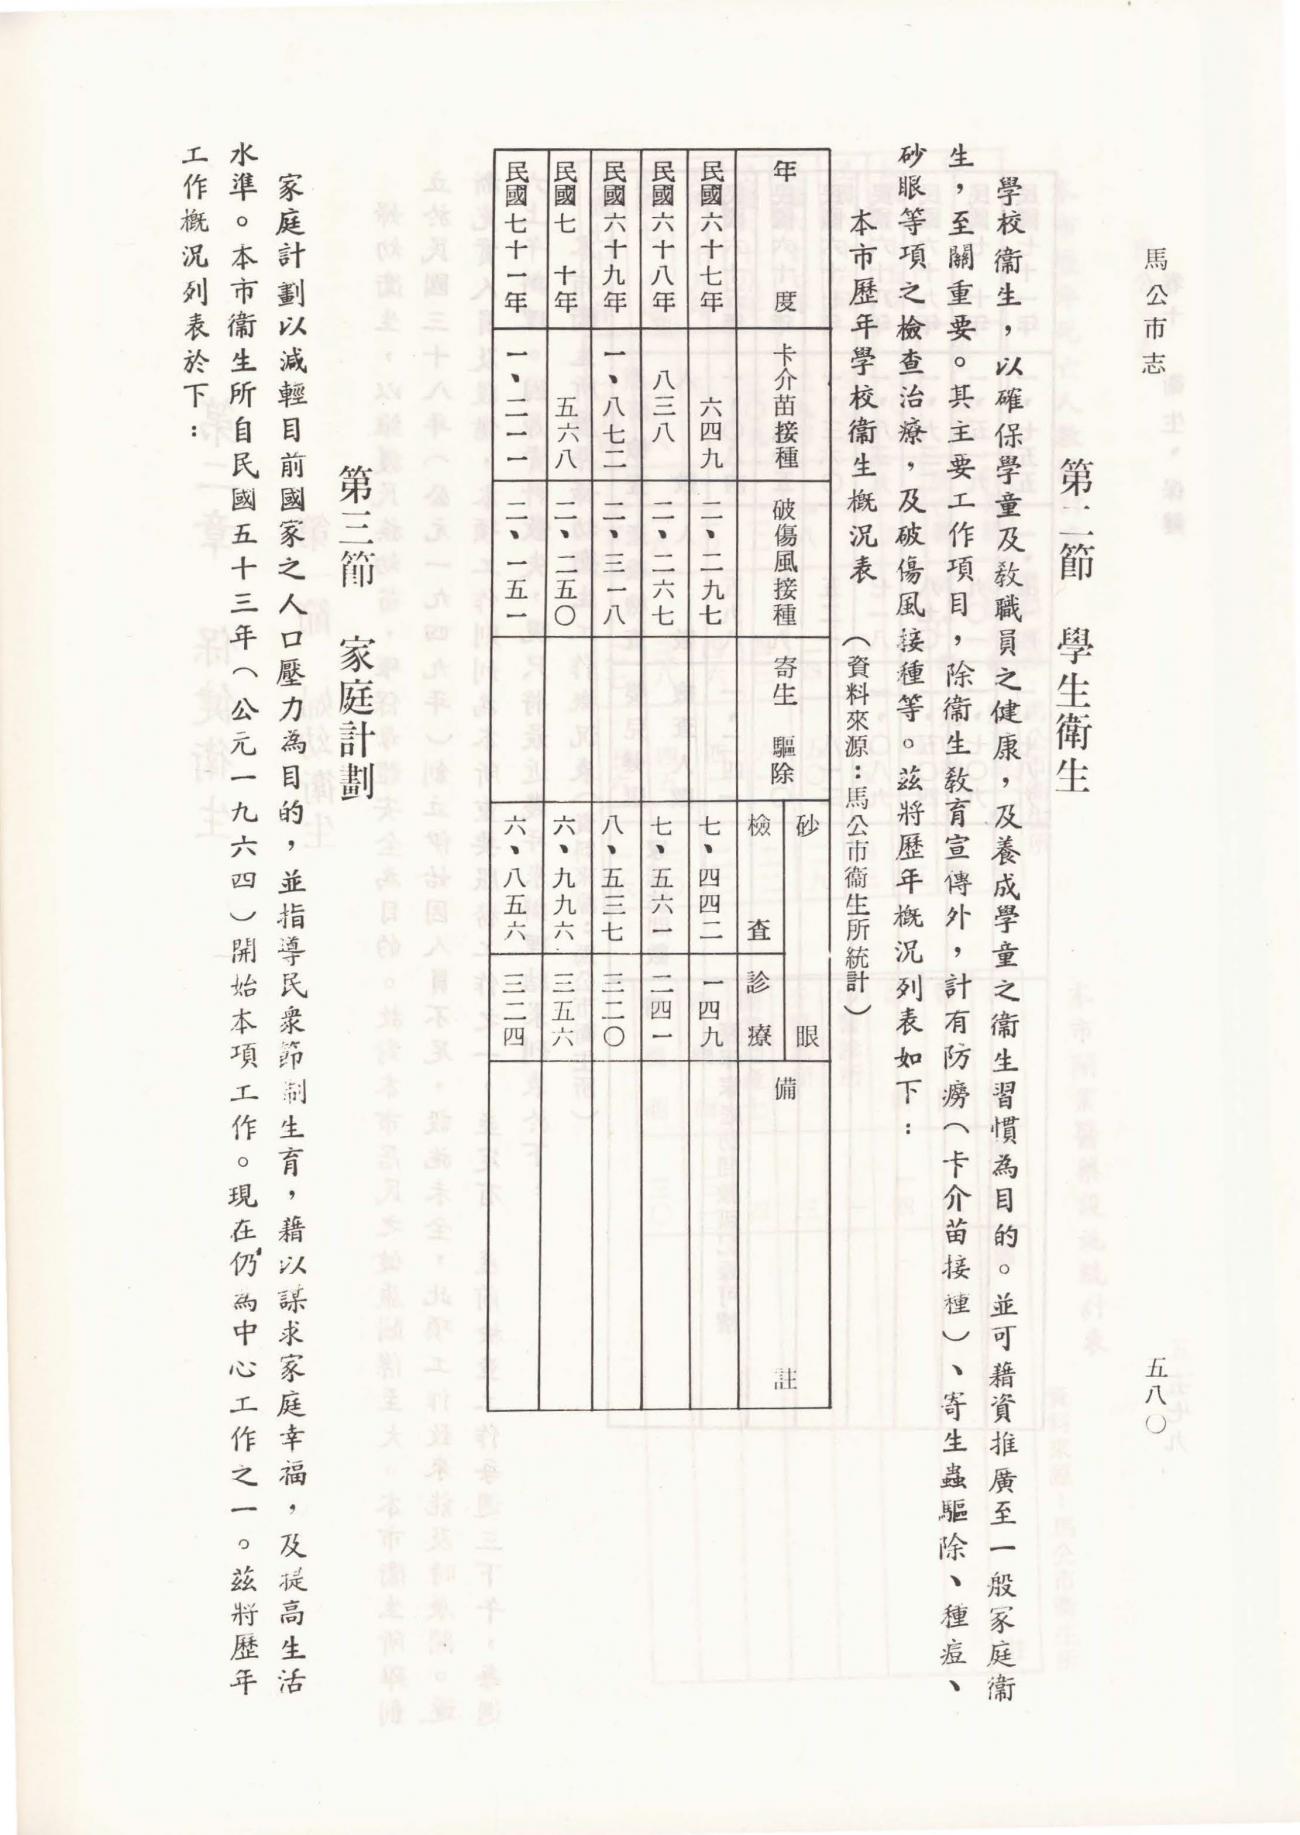 馬公市志
五八〇
第二節　學生衛生
學校衞生，以確保學童及敎職員之健康，及養成學童之衞生習慣為目的。並可藉資推廣至一般家庭衞
生，至關重要。其主要工作項目，除衞生敎育宣傳外，計有防癆（卡介苗接種）、寄生蟲驅除、種痘、
砂眼等項之檢查治療，及破傷風接種等。茲將歷年概況列表如下：
本市歷年學校衞生概況表　（資料來源：馬公市衞生所統計）
年度　卡介苗接種　破傷風接種　寄生驅除　砂眼　檢查　診療　備註
民國六十七年　六四九　二、二九七　七、四四二　一四九
民國六十八年　八三八　二、二六七　七、五六一　二四一
民國六十九年　一、八七二　二、三一八　八、五三七　三二〇
民國七十年　五六八　二、二五〇　六、九九六　三五六
民國七十一年　一、二一一　二、一五一　六、八五六　三二四
第三節　家庭計劃
家庭計劃以減輕目前國家之人口壓力為目的，並指導民衆節制生育，藉以謀求家庭幸福，及提高生活
水準。本市衞生所自民國五十三年（公元一九六四）開始本項工作。現在仍為中心工作之一。茲將歷年
工作概況列表於下：